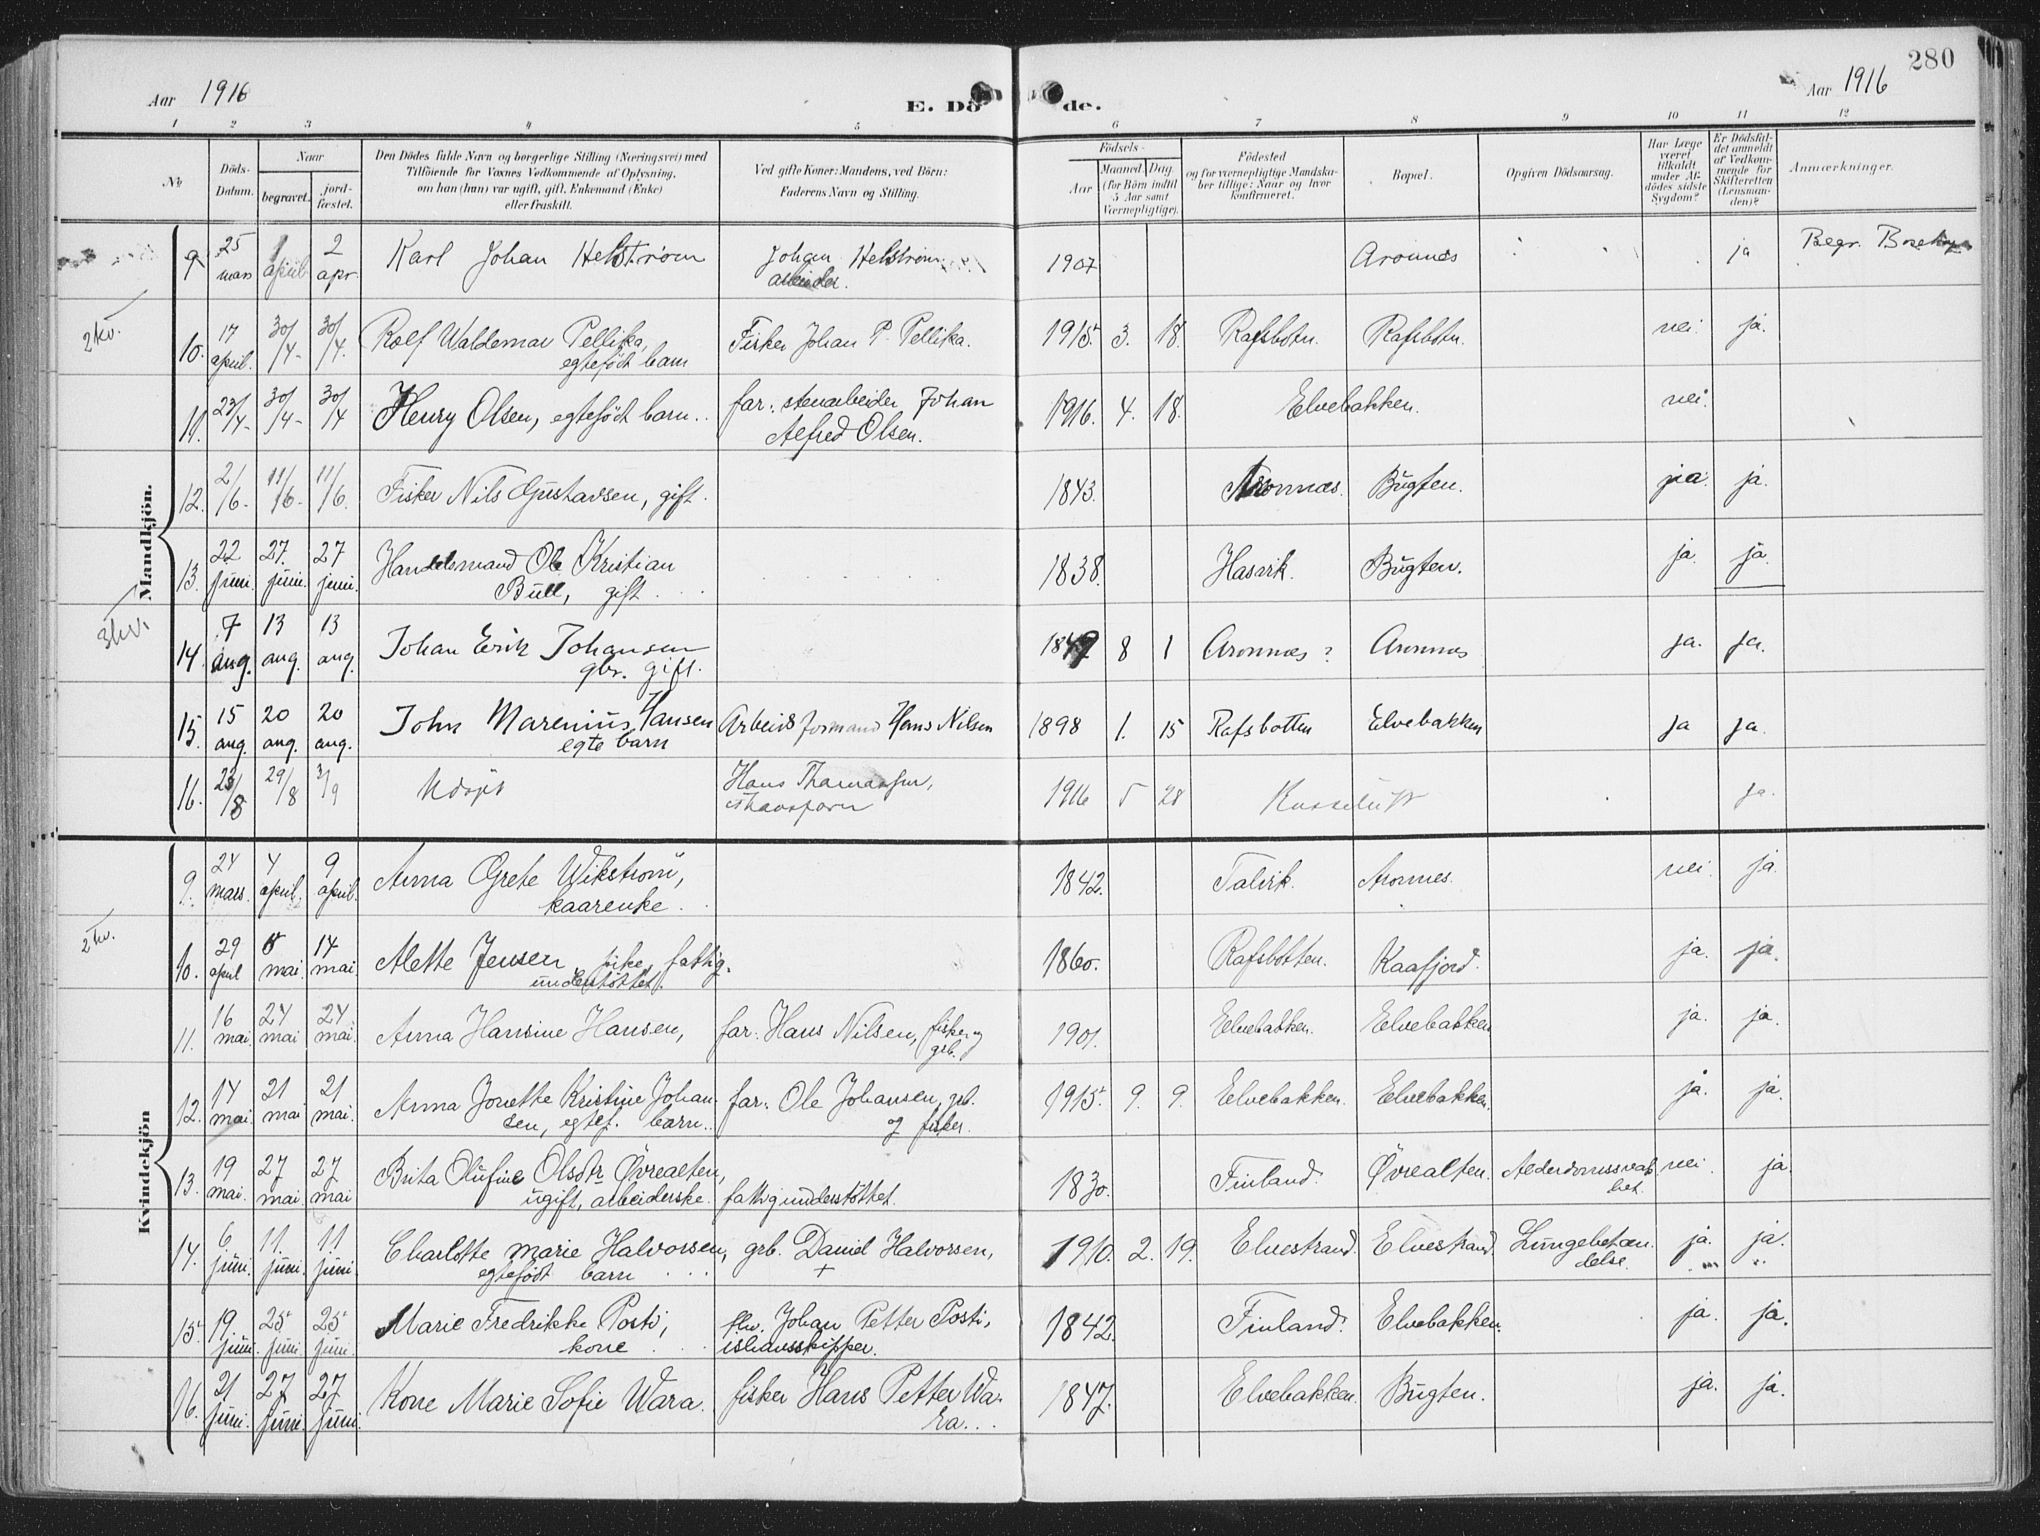 280
Aar 1916
E. Dö de.
Aar 1916
1 2 3 4 5 6 7 8 9 10 11 12
No
Döds-Datum.
Naar
begravet.
jord-fæstet.
Den Dödes fulde Navn og borgerlige Stilling (Næringsvei) med
Tilföiende for Voxnes Vedkommende af Oplysning,
om han (hun) var ugift, gift, Enkemand (Enke)
eller fraskilt.
Ved gifte Koner: Mandens, ved Börn:
Faderens Navn og Stilling.
Födsels-
Aar
Maaned. Dag.
(for Börn indtil
5 Aar samt
Værnepligtige).
Födested
og for værnepligtige Mandska-
ber tillige: Naar og hvor
konfirmeret.
Bopæl.
Opgiven Dödsaarsag.
Har Læge
været
tilkaldt
under Af-
dödes sidste
Sygdom?
Er Dödsfal-
det anmeldt
af Vedkom-
mende for
Skifteretten
(Lensman-
den)?
Anmærkninger.
Mandkjön.
9 25 mars 1 april 2 apr. Karl Johan Helström Johan Helström arbeider. 1907 Aronnes ja Begr.
2 kv.
10. 17 april. 30/4- 30/4. Rolf Waldemar Pellika, egtefödt barn Fisker Johan P. Pellika. 1915 3. 18. Rafsbotn. Rafsbotn. nei. ja.
11. 23/4- 30/4- 30/4 Henry Olsen, egtefödt barn.. far: stenarbeider Johan Alfred Olsen. 1916. 4. 18. Elvebakken. nei.
12. 2/6- 11/6- 11/6. Fisker Nils Gustavsen, gift. 1843. Aronnæs. Bugten. ja. ja.
13. 22 juni. 27. juni. 27 juni. Handelsmand Ole Kristian Bull, gift. 1838. Hasvik. Bugten. ja. ja.
3 kv.
14. 7 aug. 13 aug. 13 aug. Johan Erik Johansen gbr. gift. 1849 8 1 Aronnæs? Aronnæs ja. ja.
15. 15 aug. 20 aug. 20 aug. John Marenius Hansen egte barn Arbeids formand Hans Nilsen 1898 1. 15 Rafsbotten Elvebakken ja ja.
16. 23/8 29/8 3/9 Udöpt Hans Thomassen, 1916 5 28 ja.
Kvindekjön
9. 24 mars. 4 april. 9 april. Anna Grete Wikström, kaarenke. 1842. Talvik. Aronnes. nei. ja.
2 kv.
10. 29 april mai. 14 mai. Alette Jensen pike, fattig. understöttet. 1860. Rafsbotten. Kaafjord. ja. ja.
11. 16 mai. 24 mai 24 mai. Anna Hansine Hansen, far: Hans Nilsen, fisker og grb. 1901. Elvebakken. Elvebakken ja. ja.
12. 14 mai. 21 mai 21 mai. Anna Jonette Kristine Johansen, egtef. barn.. far: Ole Johansen, grb. og fisker. 1915. 9. 9. Elvebakken. Elvebakken. ja. ja.
13. 19 mai. 27 mai. 27 mai Brita Olufine Olsdtr Øvrealten, ugift, arbeiderske. fattigunderstöttet. 1830. Finland. Øvrealten. Alderdomssvakhet. nei. ja.
14. 6 juni. 11. juni. 11 juni. Charlotte Marie Halvorsen, egtefödt barn grb. Daniel Halvorsen, + 1910. 2. 19. Elvestrand. Elvestrand. Lungebetændelse. ja. ja.
15. 19 juni. 25 juni 25 juni. Marie Fredrikke Posti, kone fhv. Johan Petter Posti, ishavsskipper. 1842. Finland. Elvebakken. ja. ja.
16. 21 juni. 27 juni. 27 juni. Kone Marie Sofie Wara. fisker Hans Petter Wara.. 1847. Elvebakken. Bugten. ja. ja.